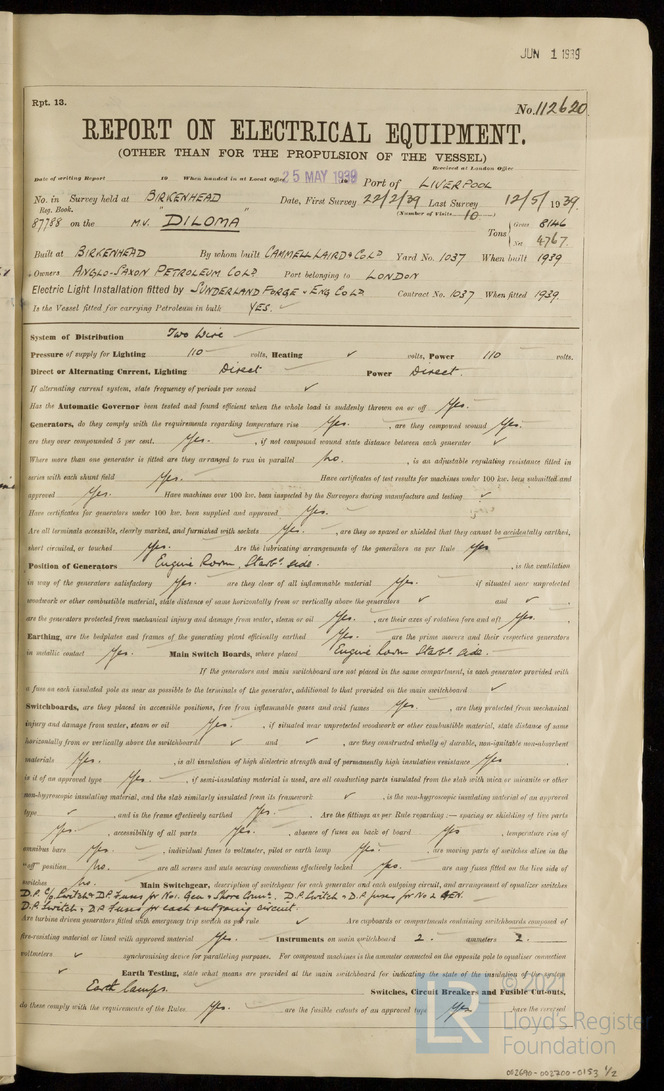 JUN 1 1939
Rpt. 13.
No. 112620
REPORT ON ELECTRICAL EQUIPMENT.
(OTHER THAN FOR THE PROPULSION OF THE VESSEL)
Received at London Office
Date of writing Report 19 When handed in at Local Office 25 MAY 1939 Port of LIVERPOOL
No. in Survey held at BIRKENHEAD Date, First Survey 22/2/39 Last Survey 12/5/1939.
Reg. Book. (Number of Visits 10)
87788 on the M.V. "DILOMA" Tons { Gross 8146
Net 4767
Built at BIRKENHEAD By whom built CAMMELL LAIRD & Co Ld Yard No. 1037 When built 1939
Owners ANGLO-SAXON PETROLEUM Co Ld. Port belonging to LONDON
Electric Light Installation fitted by SUNDERLAND FORGE & ENG Co Ld. Contract No. 1037 When fitted 1939
Is the Vessel fitted for carrying Petroleum in bulk YES.
System of Distribution Two Wire
Pressure of supply for Lighting 110 volts, Heating ✓ volts, Power 110 volts.
Direct or Alternating Current, Lighting Direct Power Direct.
If alternating current system, state frequency of periods per second ✓
Has the Automatic Governor been tested and found efficient when the whole load is suddenly thrown on or off Yes.
Generators, do they comply with the requirements regarding temperature rise Yes. , are they compound wound Yes.
are they over compounded 5 per cent. Yes. , if not compound wound state distance between each generator ✓
Where more than one generator is fitted are they arranged to run in parallel No. , is an adjustable regulating resistance fitted in
series with each shunt field Yes. Have certificates of test results for machines under 100 kw. been submitted and
approved Yes. Have machines over 100 kw. been inspected by the Surveyors during manufacture and testing ✓
Have certificates for generators under 100 kw. been supplied and approved Yes.
Are all terminals accessible, clearly marked, and furnished with sockets Yes. , are they so spaced or shielded that they cannot be accidentally earthed,
short circuited, or touched Yes. Are the lubricating arrangements of the generators as per Rule Yes
Position of Generators Engine Room, Starbd. side. , is the ventilation
in way of the generators satisfactory Yes. are they clear of all inflammable material Yes. if situated near unprotected
woodwork or other combustible material, state distance of same horizontally from or vertically above the generators ✓ and ✓ ,
are the generators protected from mechanical injury and damage from water, steam or oil Yes. , are their axes of rotation fore and aft Yes.
Earthing, are the bedplates and frames of the generating plant efficiently earthed Yes. are the prime movers and their respective generators
in metallic contact Yes. Main Switch Boards, where placed Engine Room Starbd. side.
If the generators and main switchboard are not placed in the same compartment, is each generator provided with
a fuse on each insulated pole as near as possible to the terminals of the generator, additional to that provided on the main switchboard ✓
Switchboards, are they placed in accessible positions, free from inflammable gases and acid fumes Yes. , are they protected from mechanical
injury and damage from water, steam or oil Yes. , if situated near unprotected woodwork or other combustible material, state distance of same
horizontally from or vertically above the switchboards ✓ and ✓ , are they constructed wholly of durable, non-ignitable non-absorbent
materials Yes. , is all insulation of high dielectric strength and of permanently high insulation resistance Yes ,
is it of an approved type Yes. , if semi-insulating material is used, are all conducting parts insulated from the slab with mica or micanite or other
non-hygroscopic insulating material, and the slab similarly insulated from its framework ✓ , is the non-hygroscopic insulating material of an approved
type ✓ , and is the frame effectively earthed Yes. . Are the fittings as per Rule regarding:— spacing or shielding of live parts
Yes. , accessibility of all parts Yes. , absence of fuses on back of board Yes , temperature rise of
omnibus bars Yes. , individual fuses to voltmeter, pilot or earth lamp Yes. , are moving parts of switches alive in the
"off" position No. , are all screws and nuts securing connections effectively locked Yes. are any fuses fitted on the live side of
switches No. Main Switchgear, description of switchgear for each generator and each outgoing circuit, and arrangement of equaliser switches
D.P. C/o Switch & D.P. Fuses for No1. Gen & Shore Connn. D.P. Switch & D.P. fuses for No 2 Gen.
D.P. Switch & D.P. Fuses for each outgoing circuit.
Are turbine driven generators fitted with emergency trip switch as per rule ✓ Are cupboards or compartments containing switchboards composed of
fire-resisting material or lined with approved material Yes. Instruments on main switchboard 2. ammeters 2.
voltmeters ✓ synchronising device for paralleling purposes. For compound machines is the ammeter connected on the opposite pole to equaliser connection
✓ Earth Testing, state what means are provided at the main switchboard for indicating the state of the insulation of the system
Earth lamps Switches, Circuit Breakers and Fusible Cut-outs,
do these comply with the requirements of the Rules Yes. , are the fusible cutouts of an approved type Yes , have the reversed
LR
© 2021
Lloyd's Register
Foundation
002690-002700-0153 1/2